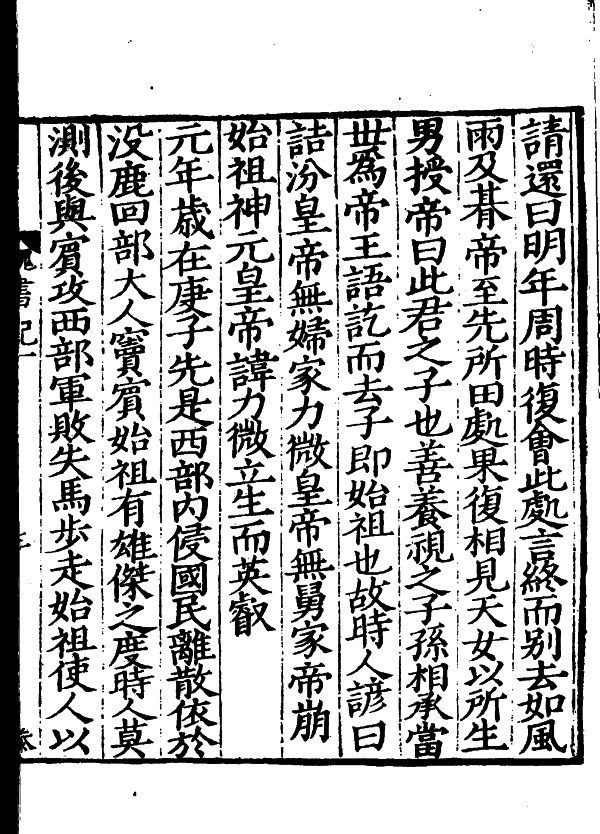 請還曰明年周時復會此處言終而别去如風
雨及朞帝至先所田處果復相見天女以所生
男授帝曰此君之子也善養視之子孫相承當
世爲帝王語訖而去子即始祖也故時人諺曰
詰汾皇帝無婦家力微皇帝無舅家帝崩
始祖神元皇帝諱力微立生而英叡
元年歲在庚子先是西部内侵國民離散依於
没鹿回部大人竇賔始祖有雄傑之度時人莫
測後與賔攻西部軍敗失馬步走始祖使人以
書紀一
三